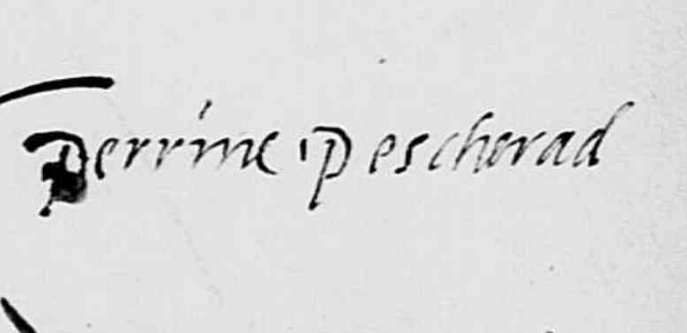 Perrine Pescherad